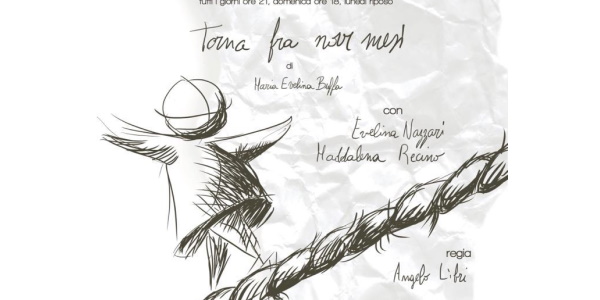 tutti i giorni ore 21, domenica ore 18, lunedì riposo
Torna fra nove mesi
di
Maria Evelina Buffa
con
Evelina Nazzari
Maddalena Recino
regia
Angelo Libri